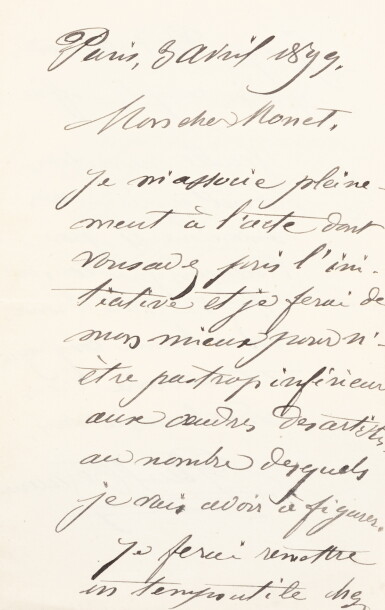 Paris, 3 avril 1899.
Mon cher Monet,
je m'associe pleine-
ment à l'acte dont
vous avez pris l'ini-
tiative et je ferai de
mon mieux pour n'-
être pas trop inférieur
aux des artistes
au nombre desquels
je vais avoir à figurer.
Je ferai remettre
en temps utile chez